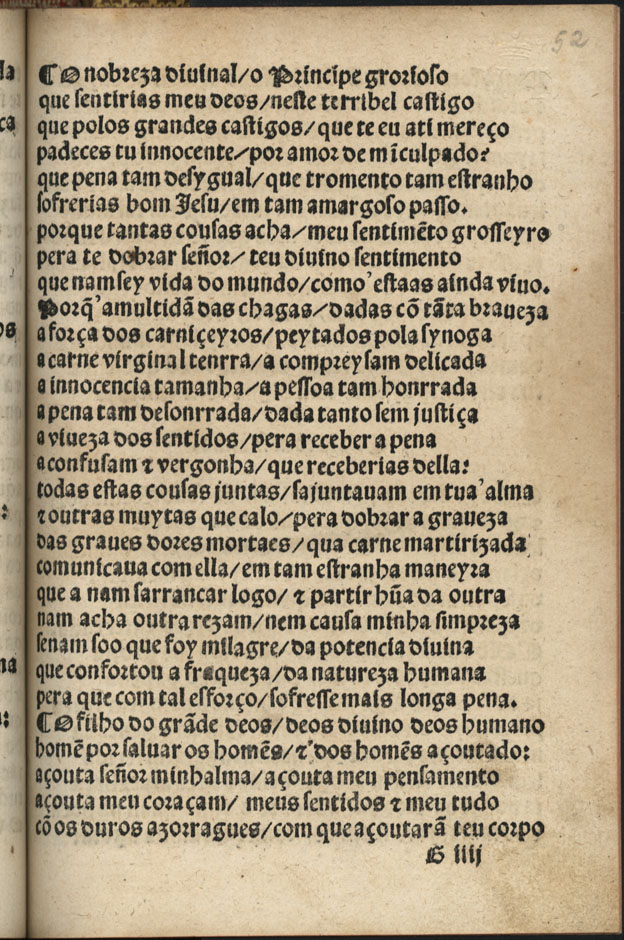 52
¶O nobreza diuinal/o Principe grorioso
que sentirias meu deos/neste terribel castigo
que polos grandes castigos/que te eu ati mereço
padeces tu innocente/por amor de mī culpado?
que pena tam desygual/que tromento tam estranho
sofrerias bom Jesu/em tam amargoso passo.
porque tantas cousas acha/meu sentimēto grosseyro
pera te dobrar señor/ teu diuino sentimento
que nam sey vida do mundo/como'estaas ainda viuo.
Porq̄'amultidā das chagas/dadas cō tāta braueza
a força dos carniçeyros/peytados pola synoga
a carne virginal tenrra/a compreysam delicada
a innocencia tamanha/a pessoa tam honrrada
a pena tam desonrrada/dada tanto sem justiça
a viueza dos sentidos/pera receber a pena
a confusam ⁊ vergonha/que receberias della:
todas estas cousas juntas/sajuntauam em tua'alma
⁊ outras muytas que calo/pera dobrar a graueza
das graues dores mortaes/qua carne martirizada
comunicaua com ella/em tam estranha maneyra
que a nam sarrancar logo/ ⁊ partir hūa da outra
nam acha outra rezam/nem causa minha simpreza
senam soo que foy milagre/da potencia diuina
que confortou a fraqueza/da natureza humana
pera que com tal esforço/sofresse mais longa pena.
¶O filho do grāde deos/deos diuino deos humano
homē por saluar os homēs/⁊'dos homēs açoutado:
açouta señor minhalma/açouta meu pensamento
açouta meu coraçam/ meus sentidos ⁊ meu tudo
cō os duros azorragues/com que açoutarā teu corpo
G iiij